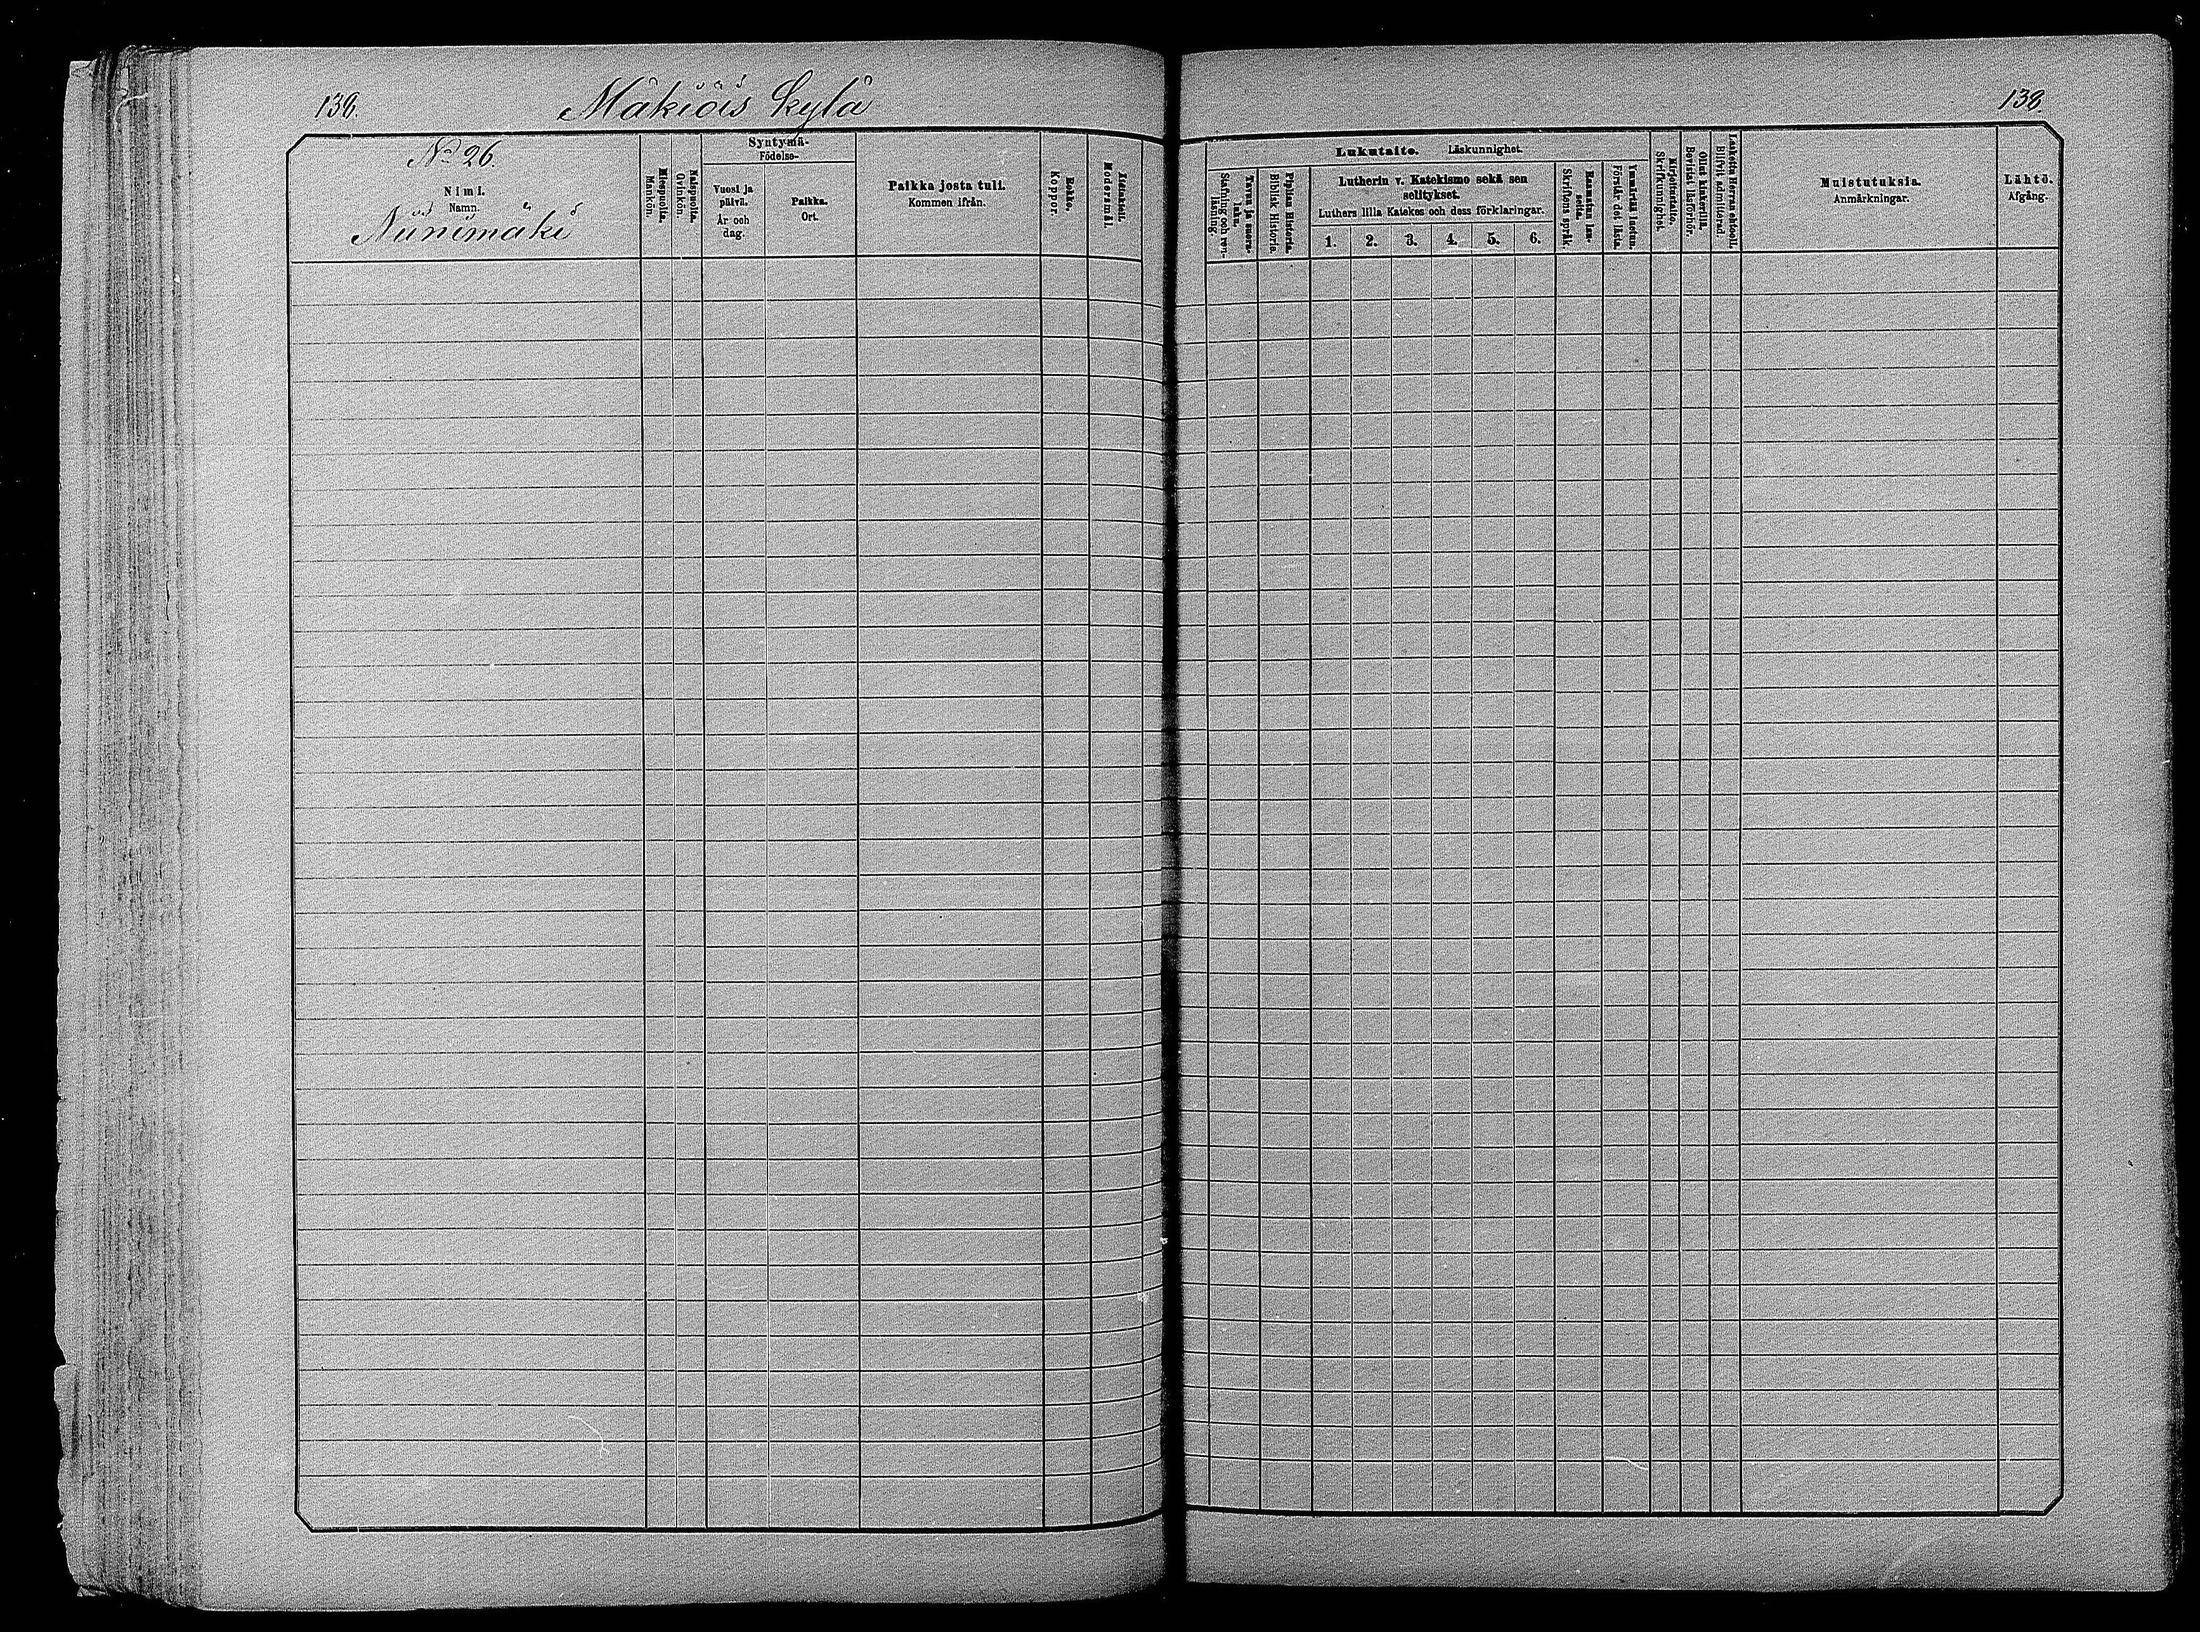 138.
Mäkiöis kylä
138
No 26.
Nimi.
Namn.
Niinimäki
Miespuolia.
Mankön.
Naispuolia.
Qvinkön.
Syntymä-
Födelse-
Vuosi ja
päivä.
År och
dag.
Paikka.
Ort.
Paikka josta tuli.
Kommen ifrån.
Rokko.
Koppor.
Äitinkieli.
Modersmål.
Lukutaito. Läskunnighet.
Tavuu ja suora-
luku.
Stafning och ren-
läsning.
Piplian Historia.
Biblisk Historia.
Lutherin v. Katekismo sekä sen
selitykset.
Luthers lilla Katekes och dess förklaringar.
1. 2. 3. 4. 5. 6.
Raamatun lau-
seita.
Skriftens språk.
Ymmärtää luetun.
Förstår det lästa.
Kirjoitustaito.
Skrifkunnighet.
Ollut kinkerillä.
Bevistat läsförhör.
Laskettu Herran ehtooll.
Blifvit admitterad.
Muistutuksia.
Anmärkningar.
Lähtö.
Afgång.